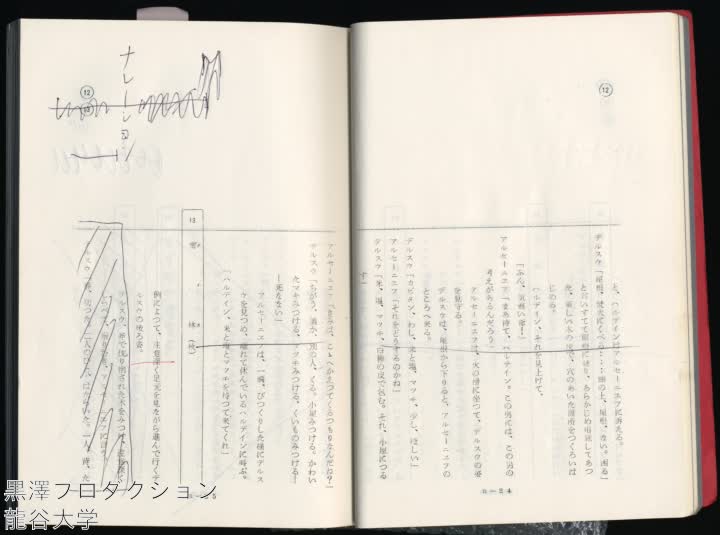 ⑫
と、ハルデインはアルセーニエフに訴える。
デルスウ「屋根、焚火にくべる……頭の上、屋根、ない。困る」
と言いすてて屋根に戻り、あらかじめ用意してあつ
た、新しい木の皮で、穴のあいた箇所をつくろいは
じめる。
ハルデイン、それを見上げて、
「ふん、気障い爺！」
アルセーニエフ「まあ待て、ハルデイン。この男には、この男の
考えがあるんだろう」
アルセーニエフは、火の傍に坐つて、デルスウの姿
を見守る。
デルスウは、屋根から下りると、アルセーニエフの
ところへ来る。
デルスウ「カピタン、わし、米と塩、マッチ、少し、ほしい」
アルセーニエフ「それをどうするのかね」
デルスウ「米、塩、マッチ、白樺の皮で包む。それ、小屋につる
す」
B—24
アルセーニエフ「きみは、ここへかえつてくるつもりなんだね？」
デルスウ「ちがう。誰か、別の人、くる。小屋みつける。かわい
たマキみつける、マッチみつける。くいものみつける！
—死なない」
アルセーニエフは、一瞬、びつくりした様にデルス
ウを見つめ、離れて休んでいるハルデインに叫ぶ。
「ハルデイン、米と塩とマッチを持つて来てくれ」
13
密林(秋)
例によつて、注意深く足元を見ながら進んで行くデ
ルスウの後ろ姿。
デルスウ、斧で伐り倒された木をみつけ、
⑫
ナレーション
黒澤プロダクション
龍谷大学